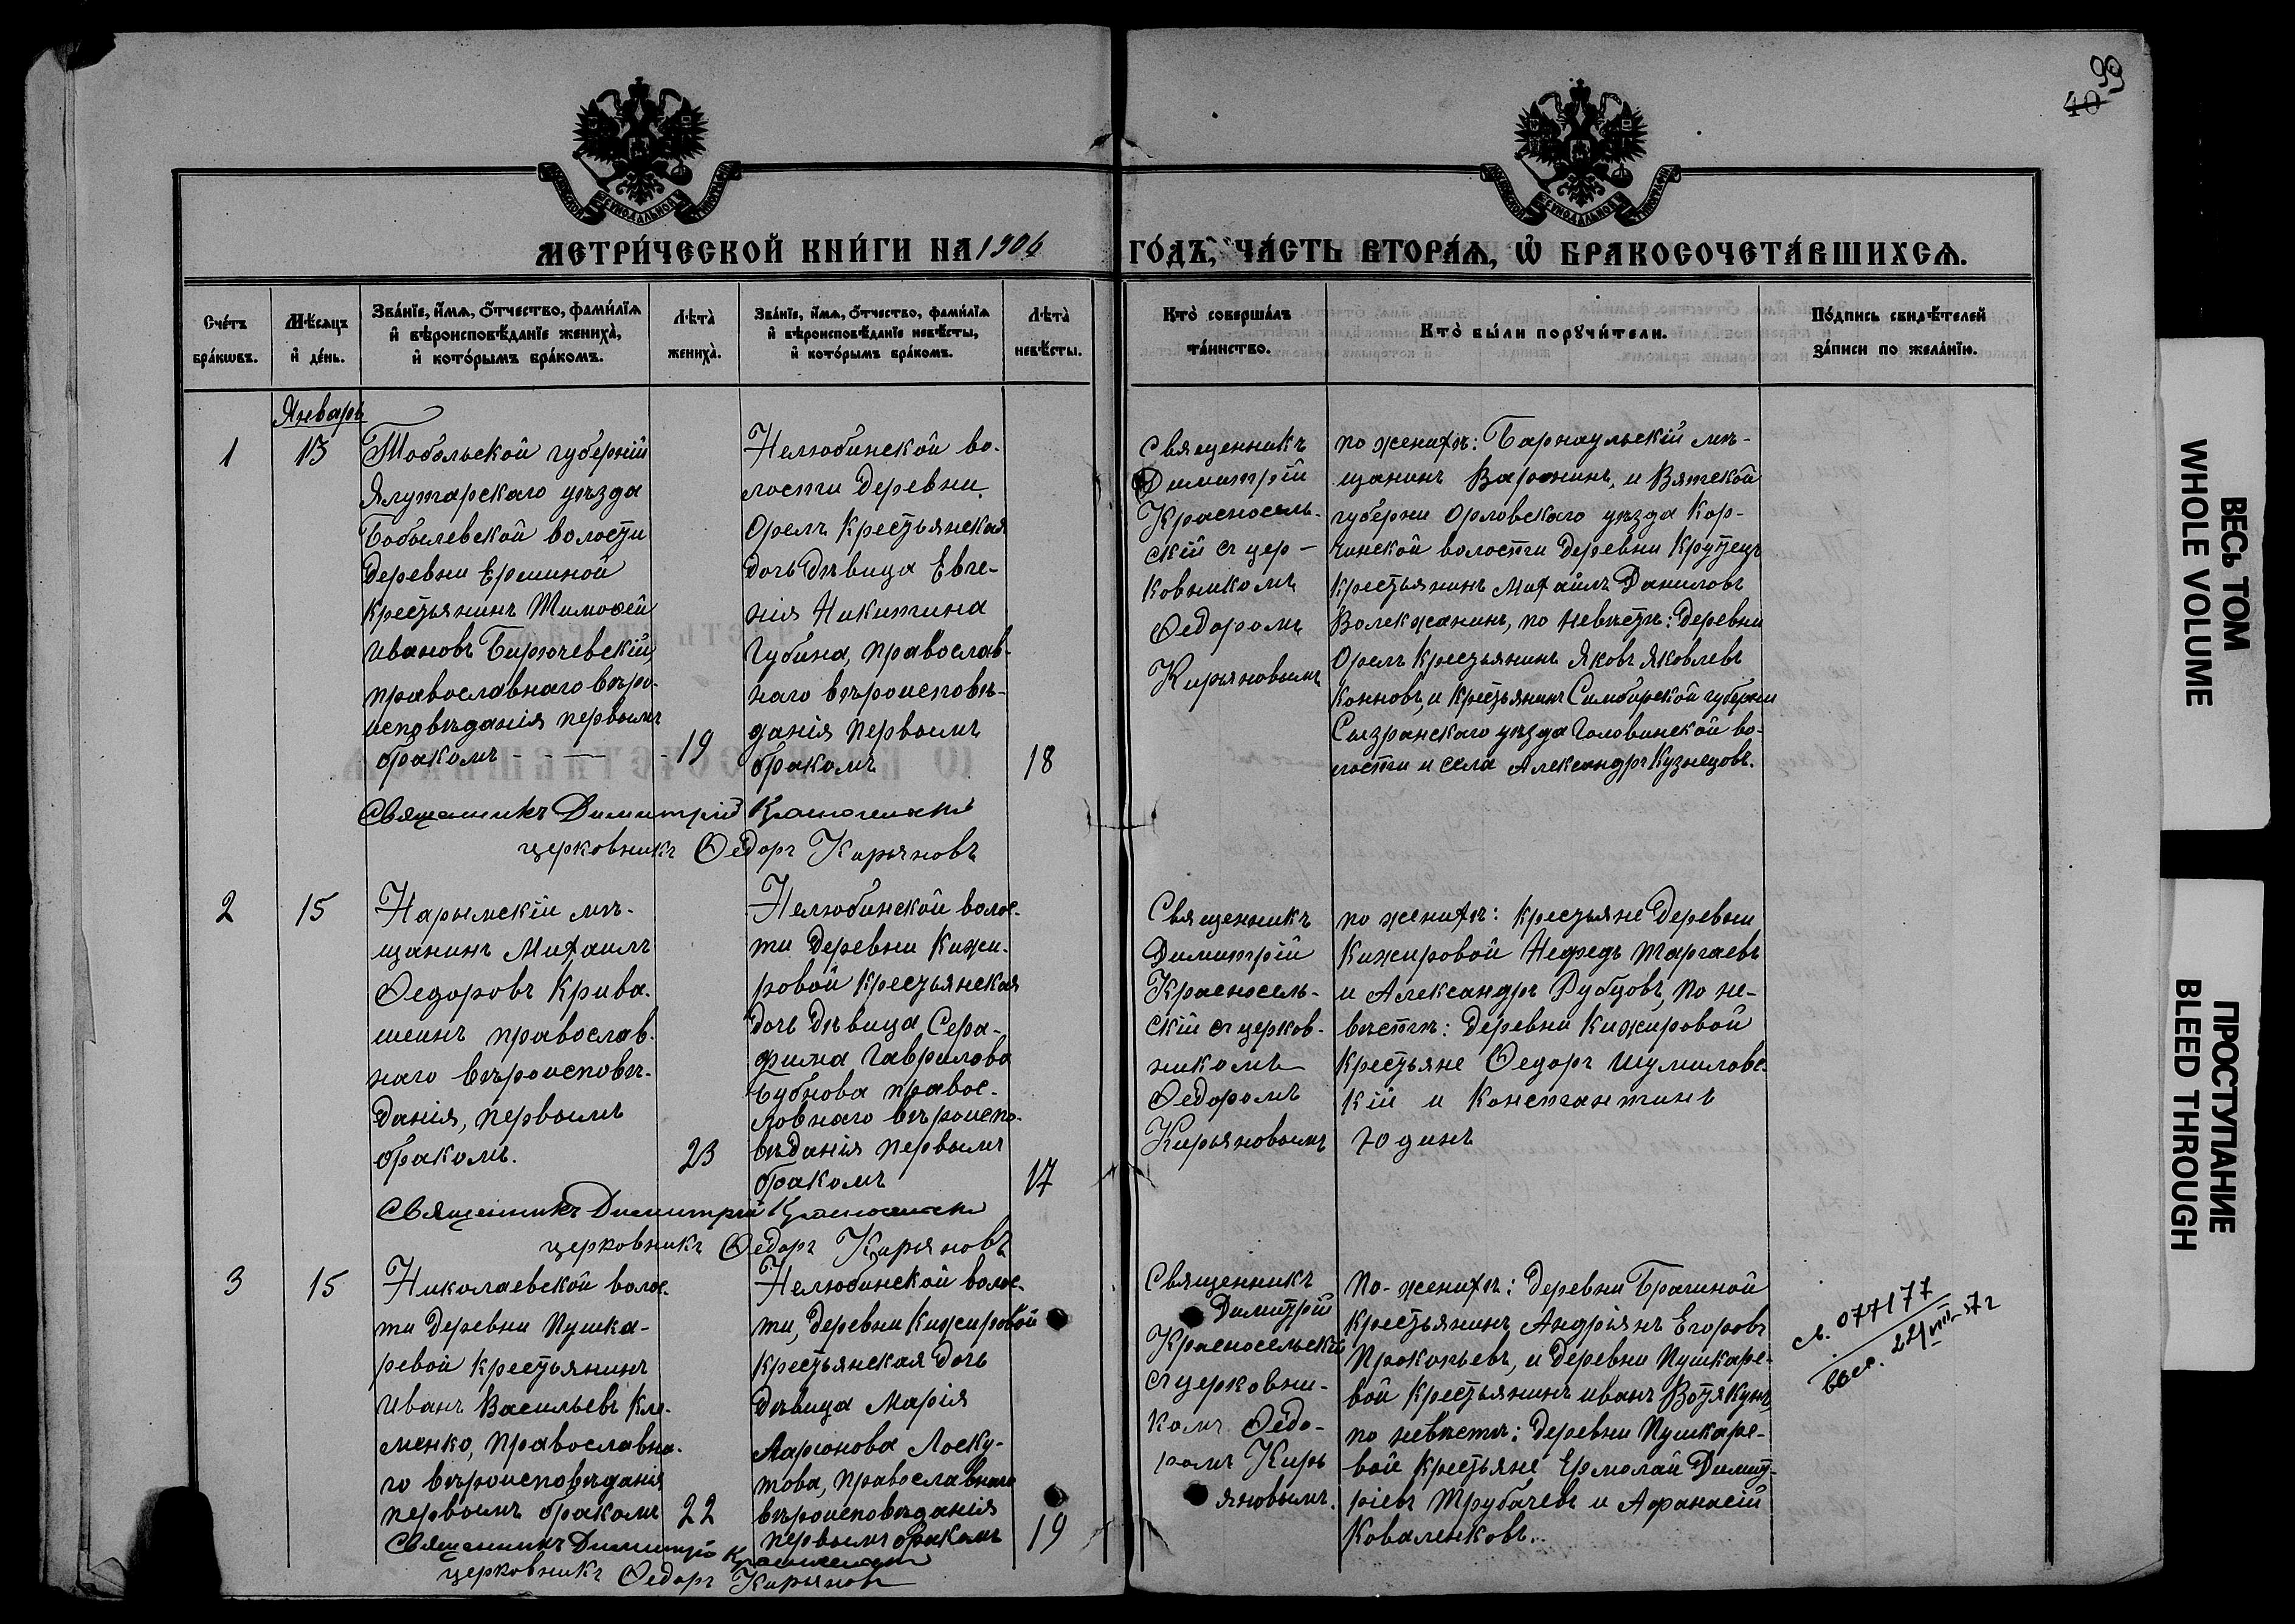 99
40
МЕТРИ́ЧЕСКОЙ КНИ́ГИ НА 1906 ГО́ДЪ, ЧА́СТЬ ВТОРА́Ѧ, Ѽ БРАКОСОЧЕТА́ВШИХСѦ.
Сче́тъ бра́кѡвъ.
Мѣ́сяцъ и҆ де́нь.
Зва́нїе, и҆́мѧ, о҆́тчество, фами́лїѧ
и҆ вѣроисповѣ́данїе жениха̀,
и҆ кото́рымъ бра́комъ.
Лѣта̀ жениха̀.
Зва́нїе, и҆́мѧ, о҆́тчество, фами́лїѧ
и҆ вѣроисповѣ́данїе невѣ́сты,
и҆ кото́рымъ бра́комъ.
Лѣта̀ невѣ́сты.
Кто̀ соверша́лъ
та́инство.
Кто̀ бы́ли порꙋчи́тели.
По́дпись свидѣ́телей
за́писи по жела́нїю.
Январь
1
13
Тобольской губерній
Ялутарскаго уѣзда
Бобылевской волости
деревни Ершиной
крестьянинъ Тимоѳей
Ивановъ Бирючевскій,
православнаго вѣро-
исповѣданія первымъ
бракомъ - - -
19
Нелюбинской во-
лости деревни
Орелъ крестьянская
дочь дѣвица Евге-
нія Никитина
Губина, православ-
наго вѣроисповѣ-
данія первымъ
бракомъ
18
Священникъ
Димитрій
Красносель-
скій съ цер-
ковникомъ
Ѳедоромъ
Кирьяновымъ
по женихѣ: Барнаульскій мѣ-
щанинъ Варонинъ, и Вятской
губерни Орловскаго уѣзда Кор-
чинской волости деревни Крутецъ
крестьянинъ Михаилъ Даниловъ
Волекжанинъ, по невѣстѣ: деревни
Орелъ крестьянинъ Яковъ Яковлевъ
Конновъ, и крестьянинъ Симбирской губерни
Сызранскаго уѣзда Головинской во-
лости и села Александръ Кузнецовъ.
Священникъ Димитрій Красносельскій
церковникъ Ѳедоръ Кирьяновъ
2
15
Нарымскій мѣ-
щанинъ Михаилъ
Ѳедоровъ Крива-
шеинъ православ-
наго вѣроисповѣ-
данія, первымъ
бракомъ.
23
Нелюбинской волос-
ти деревни Кижи-
ровой крестьянская
дочь дѣвица, Сера-
фима Гаврилова
Бубнова правос-
лавнаго вѣроиспо-
вѣданія первымъ
бракомъ
17
Священникъ
Димитрій
Красносель-
скій съ церков-
никомъ
Ѳедоромъ
Кирьяновымъ
по женихѣ: крестьяне деревни
Кижировой Нефедъ Таргаевъ
и Александръ Рубцовъ, по не-
вѣстѣ: деревни Кижировой
крестьяне Ѳедоръ Шумиловс-
кій и Константинъ
Юдинъ
Священникъ Димитрій Красносельскій
церковникъ Ѳедоръ Кирьяновъ
3
15
Николаевской волос-
ти деревни Пушка-
ревой крестьянинъ
Иванъ Васильевъ Кле-
менко, православна-
го вѣроисповѣданія
первымъ бракомъ
22
Нелюбинской волос-
ти, деревни Кижировой
крестьянская дочь
дѣвица Марія
Ларіонова Лоску-
това, православнаго
вѣроисповѣданія
первымъ бракомъ
19
Священникъ
Димитрій
Красносельскій
съ церковни-
комъ Ѳедо-
ромъ Кирь
яновымъ.
По женихѣ: деревни Брагиной
крестьянинъ Андріянъ Егоровъ
Прокопьевъ, и деревни Пушкаре-
вой крестьянинъ Иванъ Вотякунъ,
по невѣстѣ: деревни Пушкаре-
вой крестьяне Ермолай Димит-
ріевъ Трубачевъ и Афанасій
Коваленковъ.
077177
22/VIII-37г
Священникъ Димитрій Красносельскій
церковникъ Ѳедоръ Кирьяновъ
ВЕСЬ ТОМ
WHOLE VOLUME
ПРОСТУПАНИЕ
BLEED THROUGH